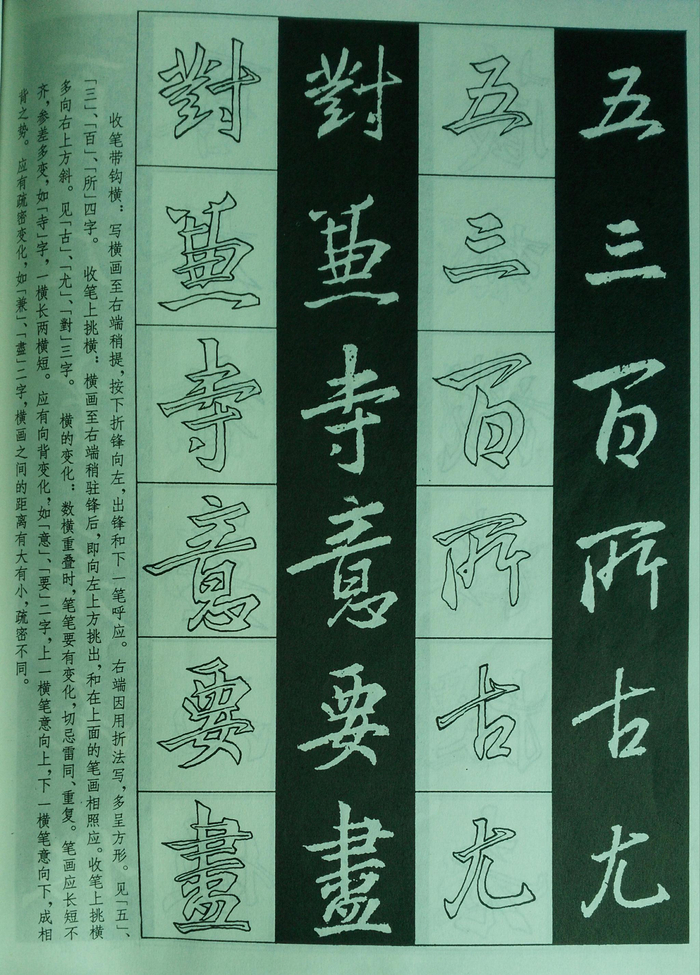 五三百所古尤
五三百所古尤
對兼寺意要盡
對兼寺意要盡
收笔带钩横：写横画至右端稍提，按下折锋向左，出锋和下一笔呼应。右端因用折法写，多呈方形。见「五」、
「三」、「百」、「所」四字。收笔上挑横：横画至右端稍驻锋后，即向左上方挑出，和在上面的笔画相照应。收笔上挑横
多向右上方斜。见「古」、「尤」、「對」三字。横的变化：数横重叠时，笔笔要有变化，切忌雷同、重复。笔画应长短不
齐，参差多变，如「寺」字，一横长两横短。应有向背变化，如「意」、「要」二字，上一横笔意向上，下一横笔意向下，成相
背之势。应有疏密变化，如「兼」、「盡」二字，横画之间的距离有大有小，疏密不同。